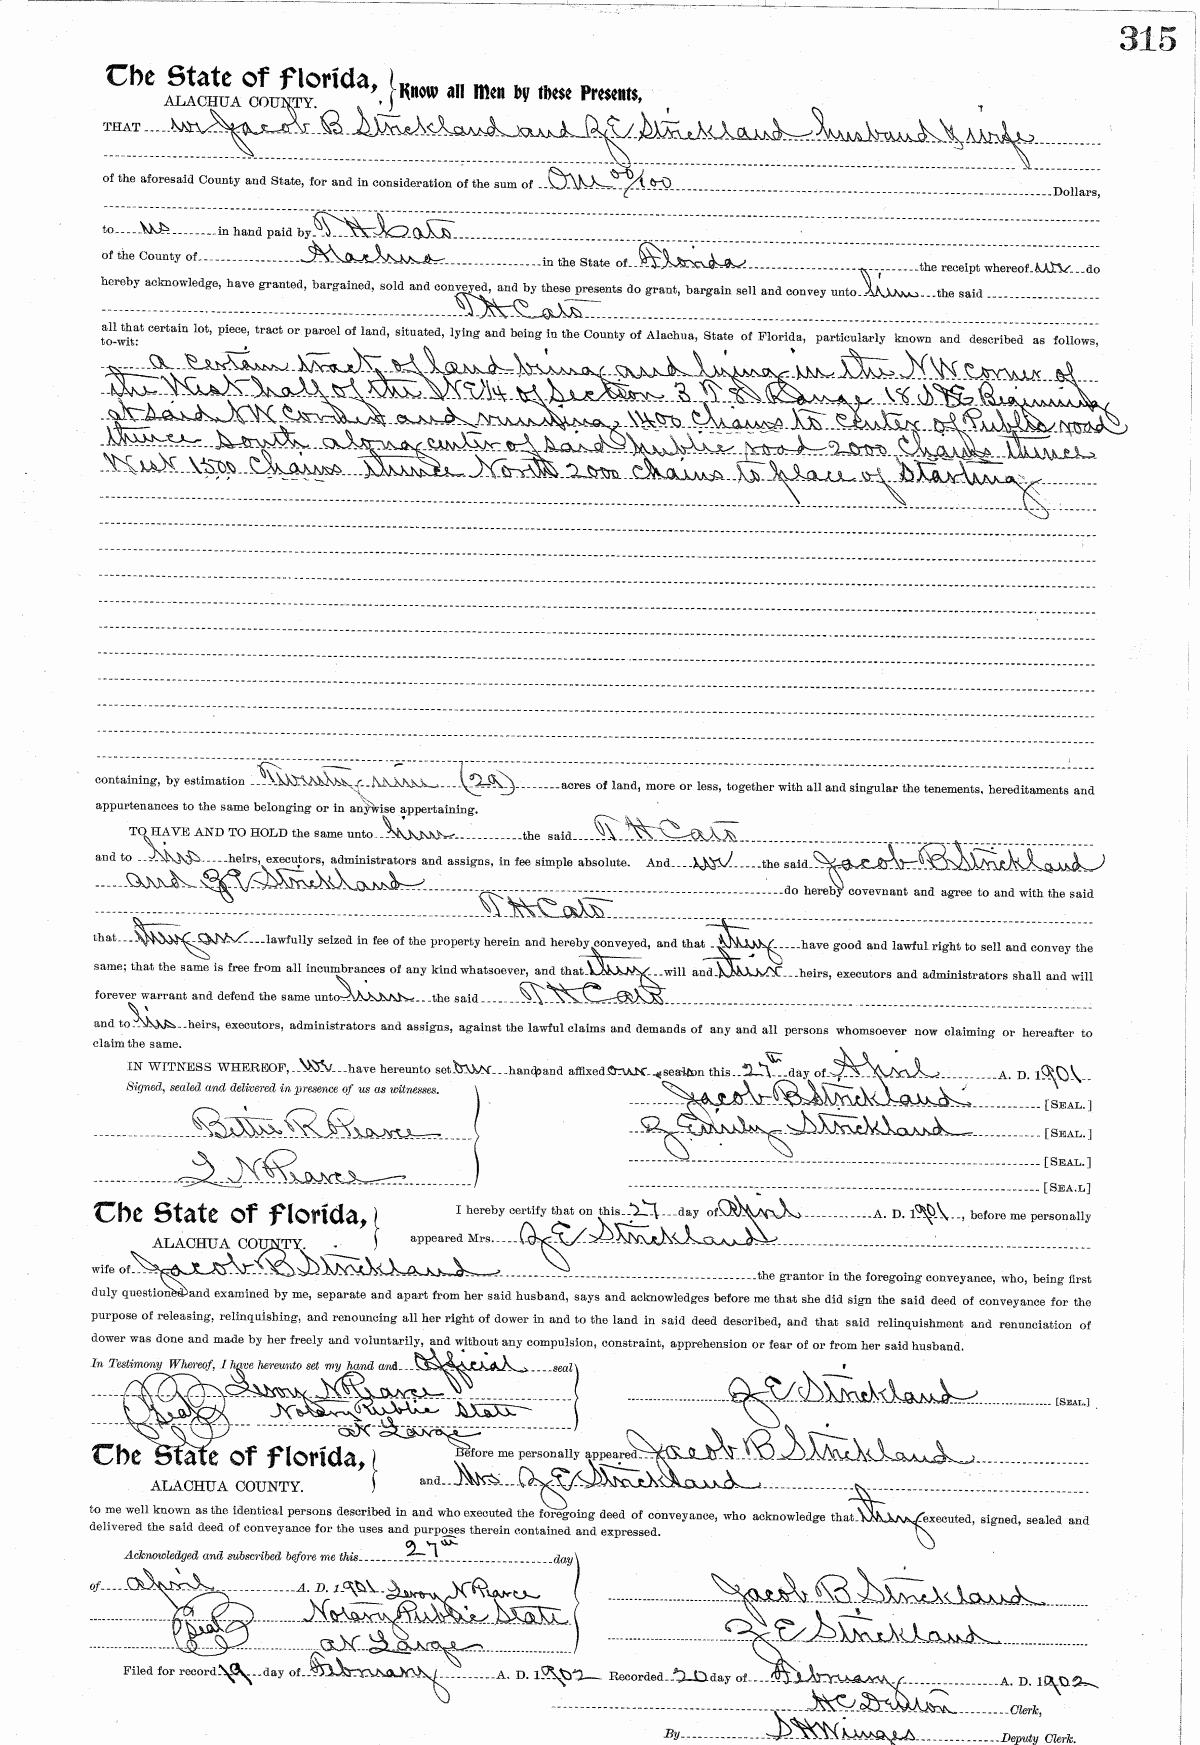 315
The State of Florida, Know all Men by these Presents,
ALACHUA COUNTY.
THAT we Jacob B Strickland and Z E Strickland husband & wife
of the aforesaid County and State, for and in consideration of the sum of One 00/100 Dollars,
to us in hand paid by T H Cato
of the County of Alachua in the State of Florida the receipt whereof we do
hereby acknowledge, have granted, bargained, sold and conveyed, and by these presents do grant, bargain sell and convey unto him the said
T H Cato
all that certain lot, piece, tract or parcel of land, situated, lying and being in the County of Alachua, State of Florida, particularly known and described as follows,
to-wit:
a certain tract of land being and lying in the NW corner of
the West half of the NE 1/4 of Section 3 T 8 Range 18 S & E Beginning
at said NW Corner and running 1400 Chains to center of Public road
thence South along center of said Public road 2000 Chains thence
West 1500 Chains thence North 2000 chains to place of Starting
containing, by estimation Twenty nine (29) acres of land, more or less, together with all and singular the tenements, hereditaments and
appurtenances to the same belonging or in anywise appertaining.
TO HAVE AND TO HOLD the same unto him the said T H Cato
and to his heirs, executors, administrators and assigns, in fee simple absolute. And we the said Jacob B Strickland
and Z E Strickland do hereby covevnant and agree to and with the said
T H Cato
that they are lawfully seized in fee of the property herein and hereby conveyed, and that they have good and lawful right to sell and convey the
same; that the same is free from all incumbrances of any kind whatsoever, and that they will and their heirs, executors and administrators shall and will
forever warrant and defend the same unto him the said T H Cato
and to his heirs, executors, administrators and assigns, against the lawful claims and demands of any and all persons whomsoever now claiming or hereafter to
claim the same.
IN WITNESS WHEREOF, we have hereunto set our hand and affixed our seal on this 27th day of April A. D. 1901
Signed, sealed and delivered in presence of us as witnesses.
Jacob B Strickland [SEAL.]
Bettie R Pearce Z Emily Strickland [SEAL.]
[SEAL.]
L N Pearce
[SEA.L]
The State of Florida, I hereby certify that on this 27 day of April A. D. 1901, before me personally
ALACHUA COUNTY. appeared Mrs. Z E Strickland
wife of Jacob B Strickland the grantor in the foregoing conveyance, who, being first
duly questioned and examined by me, separate and apart from her said husband, says and acknowledges before me that she did sign the said deed of conveyance for the
purpose of releasing, relinquishing, and renouncing all her right of dower in and to the land in said deed described, and that said relinquishment and renunciation of
dower was done and made by her freely and voluntarily, and without any compulsion, constraint, apprehension or fear of or from her said husband.
In Testimony Whereof, I have hereunto set my hand and Official seal
Leroy N Pearce Z E Strickland [SEAL.]
Seal Notary Public State
at Large
The State of Florida, Before me personally appeared Jacob B Strickland
ALACHUA COUNTY. and Mrs Z E Strickland
to me well known as the identical persons described in and who executed the foregoing deed of conveyance, who acknowledge that they executed, signed, sealed and
delivered the said deed of conveyance for the uses and purposes therein contained and expressed.
Acknowledged and subscribed before me this 27th day
of April A. D. 1901 Leroy N Pearce Jacob B Strickland
Seal Notary Public State
at Large Z E Strickland
Filed for record 19 day of February A. D. 1902 Recorded 20 day of February A. D. 1902
H C Denton Clerk,
By S H Wienges Deputy Clerk.